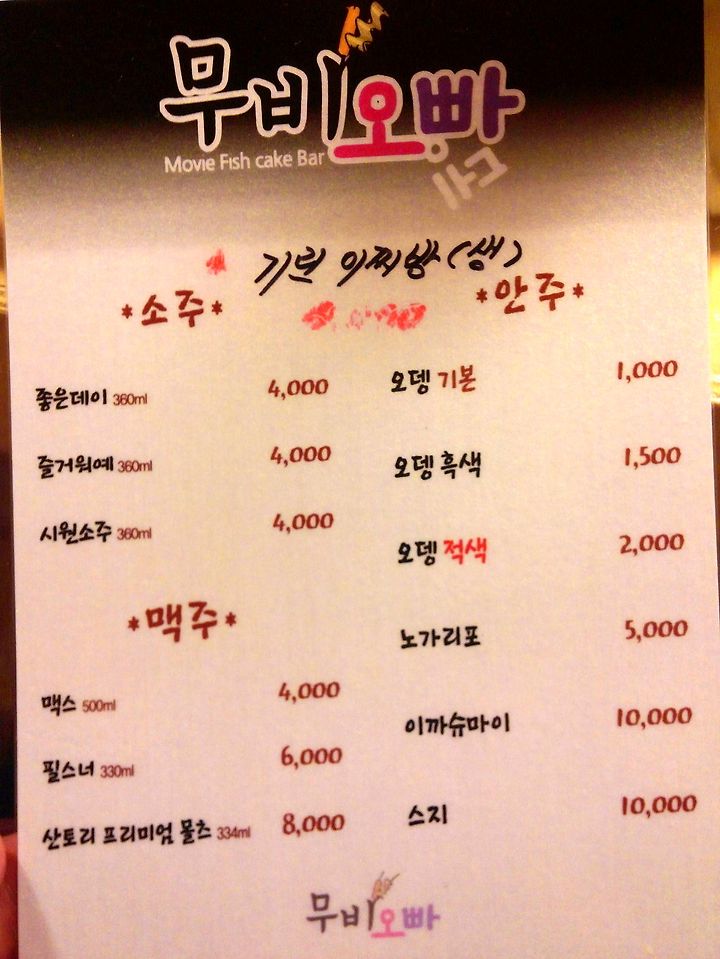 무비오빠
Movie Fish cake Bar
*소주*
좋은데이 360ml 4,000
즐거워예 360ml 4,000
시원소주 360ml 4,000
*맥주*
맥스 500ml 4,000
필스너 330ml 6,000
산토리 프리미엄 몰츠 334ml 8,000
*안주*
오뎅 기본 1,000
오뎅 흑색 1,500
오뎅 적색 2,000
노가리포 5,000
이까슈마이 10,000
스지 10,000
무비오빠